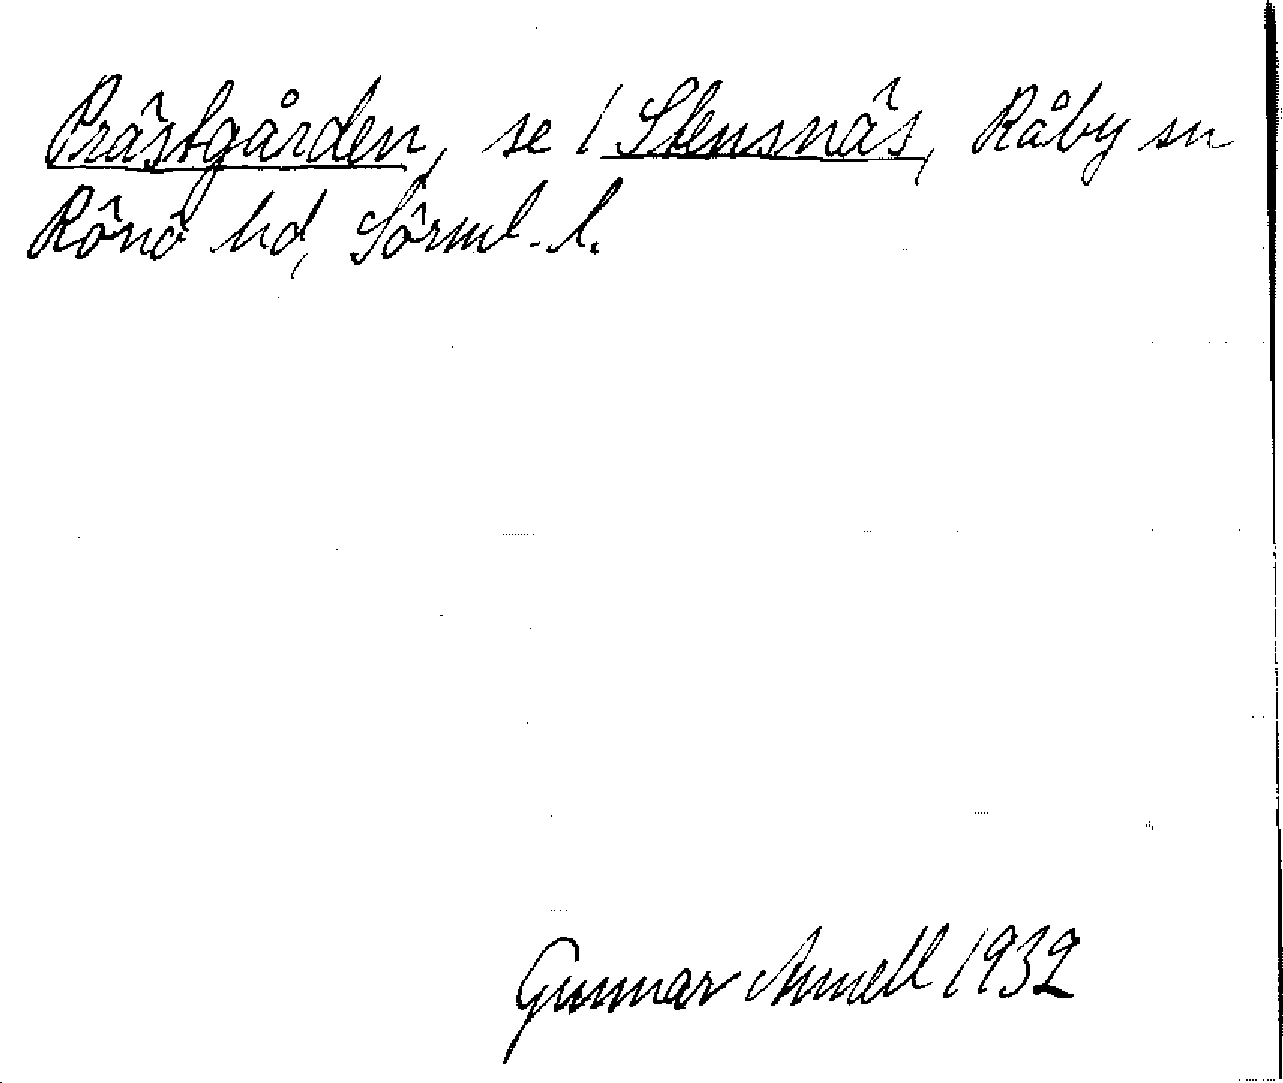 Prästgården, se / Stensnäs, Råby sn
Rönö hd, Sörml. l.
Gunnar Annell 1932